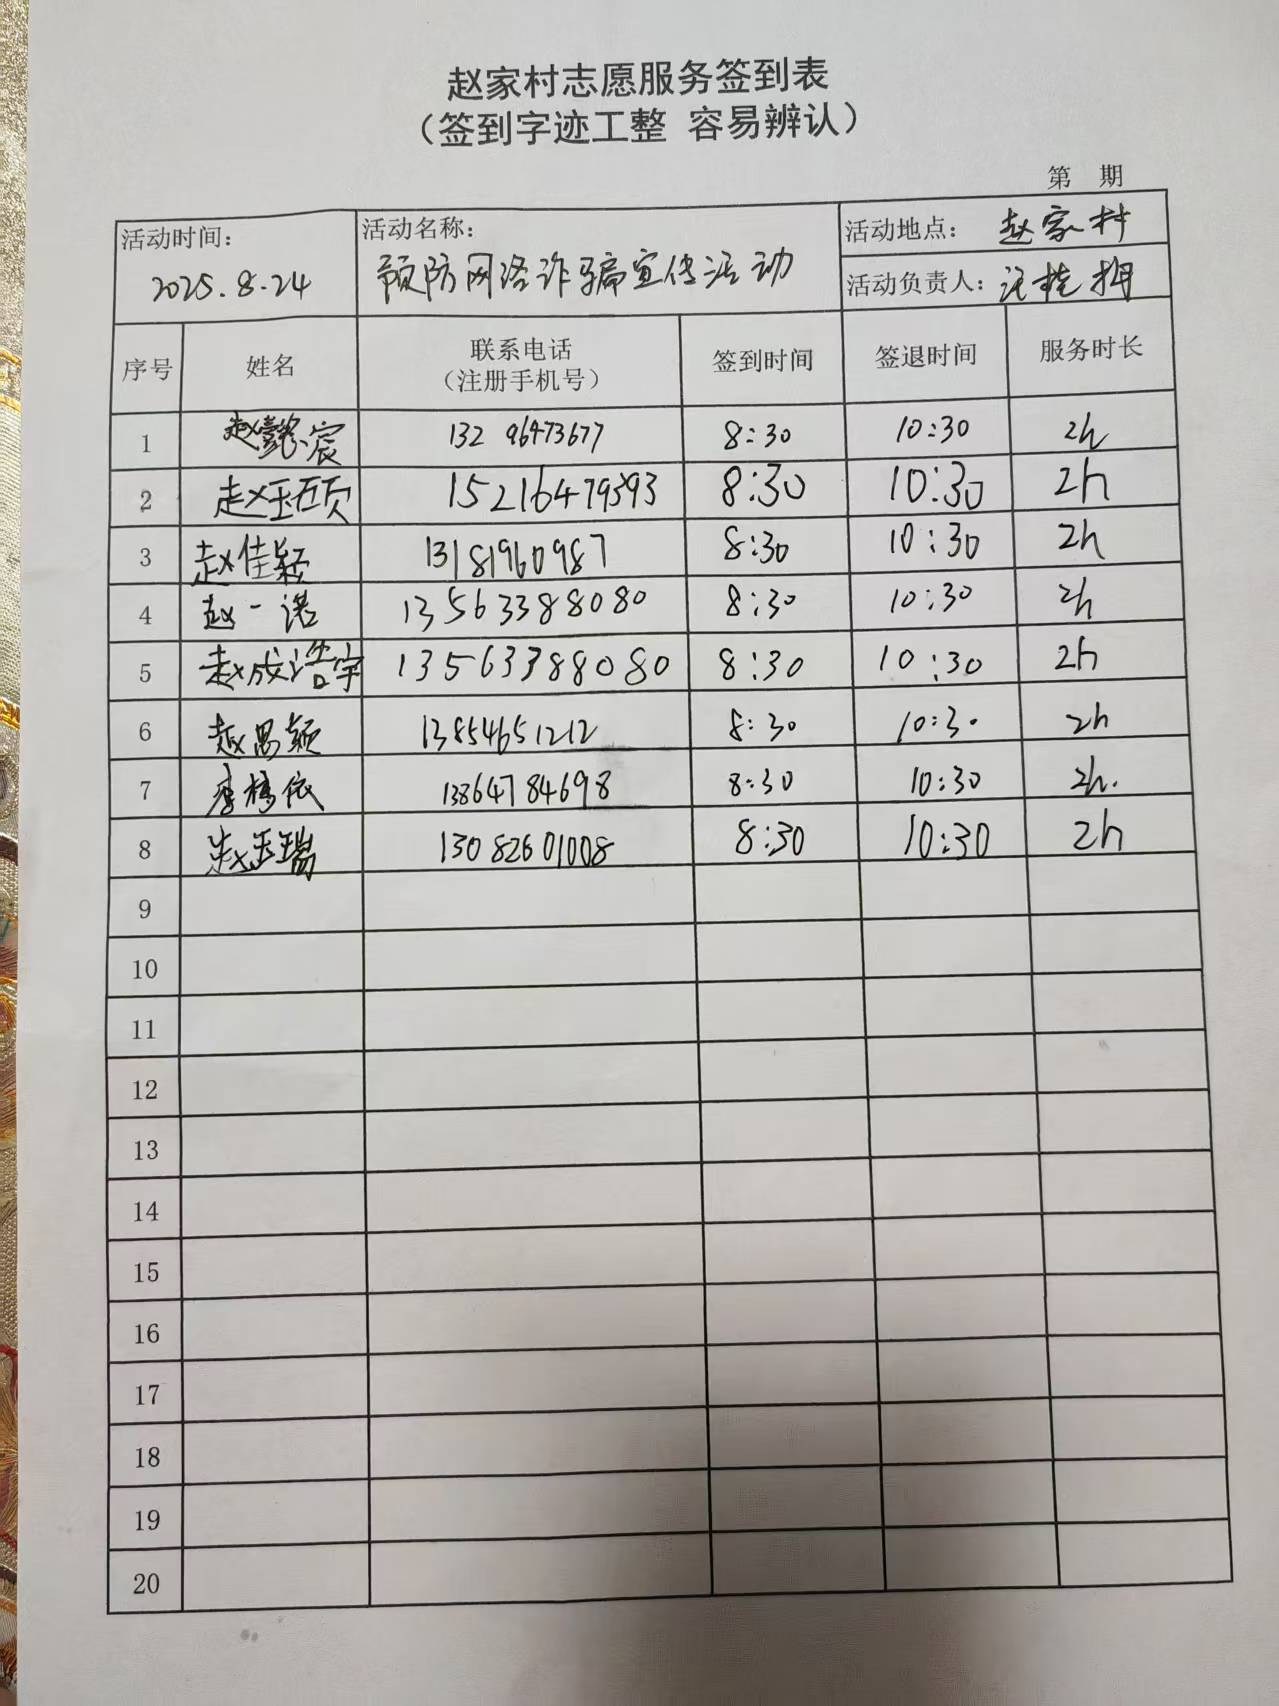 赵家村志愿服务签到表
（签到字迹工整 容易辨认）
第 期
活动时间： 活动名称： 活动地点： 赵家村
2025.8.24 预防网络诈骗宣传活动 活动负责人：
序号 姓名 联系电话 签到时间 签退时间 服务时长
（注册手机号）
1 赵懿宸 132 96473677 8:30 10:30 2h
2 赵珏颀 15216479393 8:30 10:30 2h
3 赵佳颖 13181960987 8:30 10:30 2h
4 赵一诺 13563388080 8:30 10:30 2h
5 赵成浩宇 13563388080 8:30 10:30 2h
6 赵思颖 13854651212 8:30 10:30 2h
7 13864784698 8:30 10:30 2h.
8 赵玉瑞 13082601008 8:30 10:30 2h
9
10
11
12
13
14
15
16
17
18
19
20